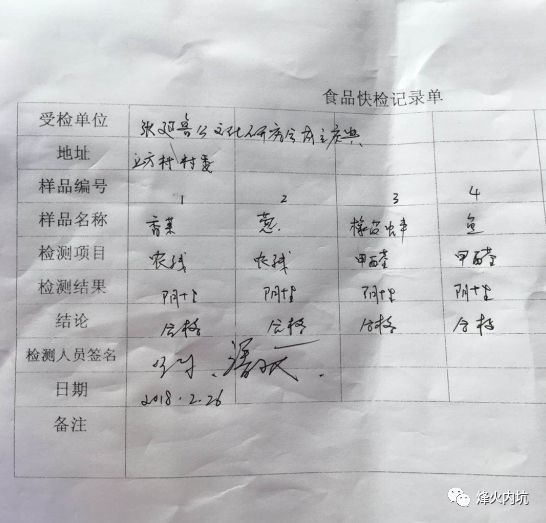 食品快检记录单
受检单位 张延鲁公文化研究会成立庆典
地址 立方村村委
样品编号 1 2 3 4
样品名称 香菜 葱 鱼
检测项目 农残 农残 甲醛 甲醛
检测结果 阴性 阴性 阴性 阴性
结论 合格 合格 合格 合格
检测人员签名
日期 2018.2.26
备注
烽火内坑